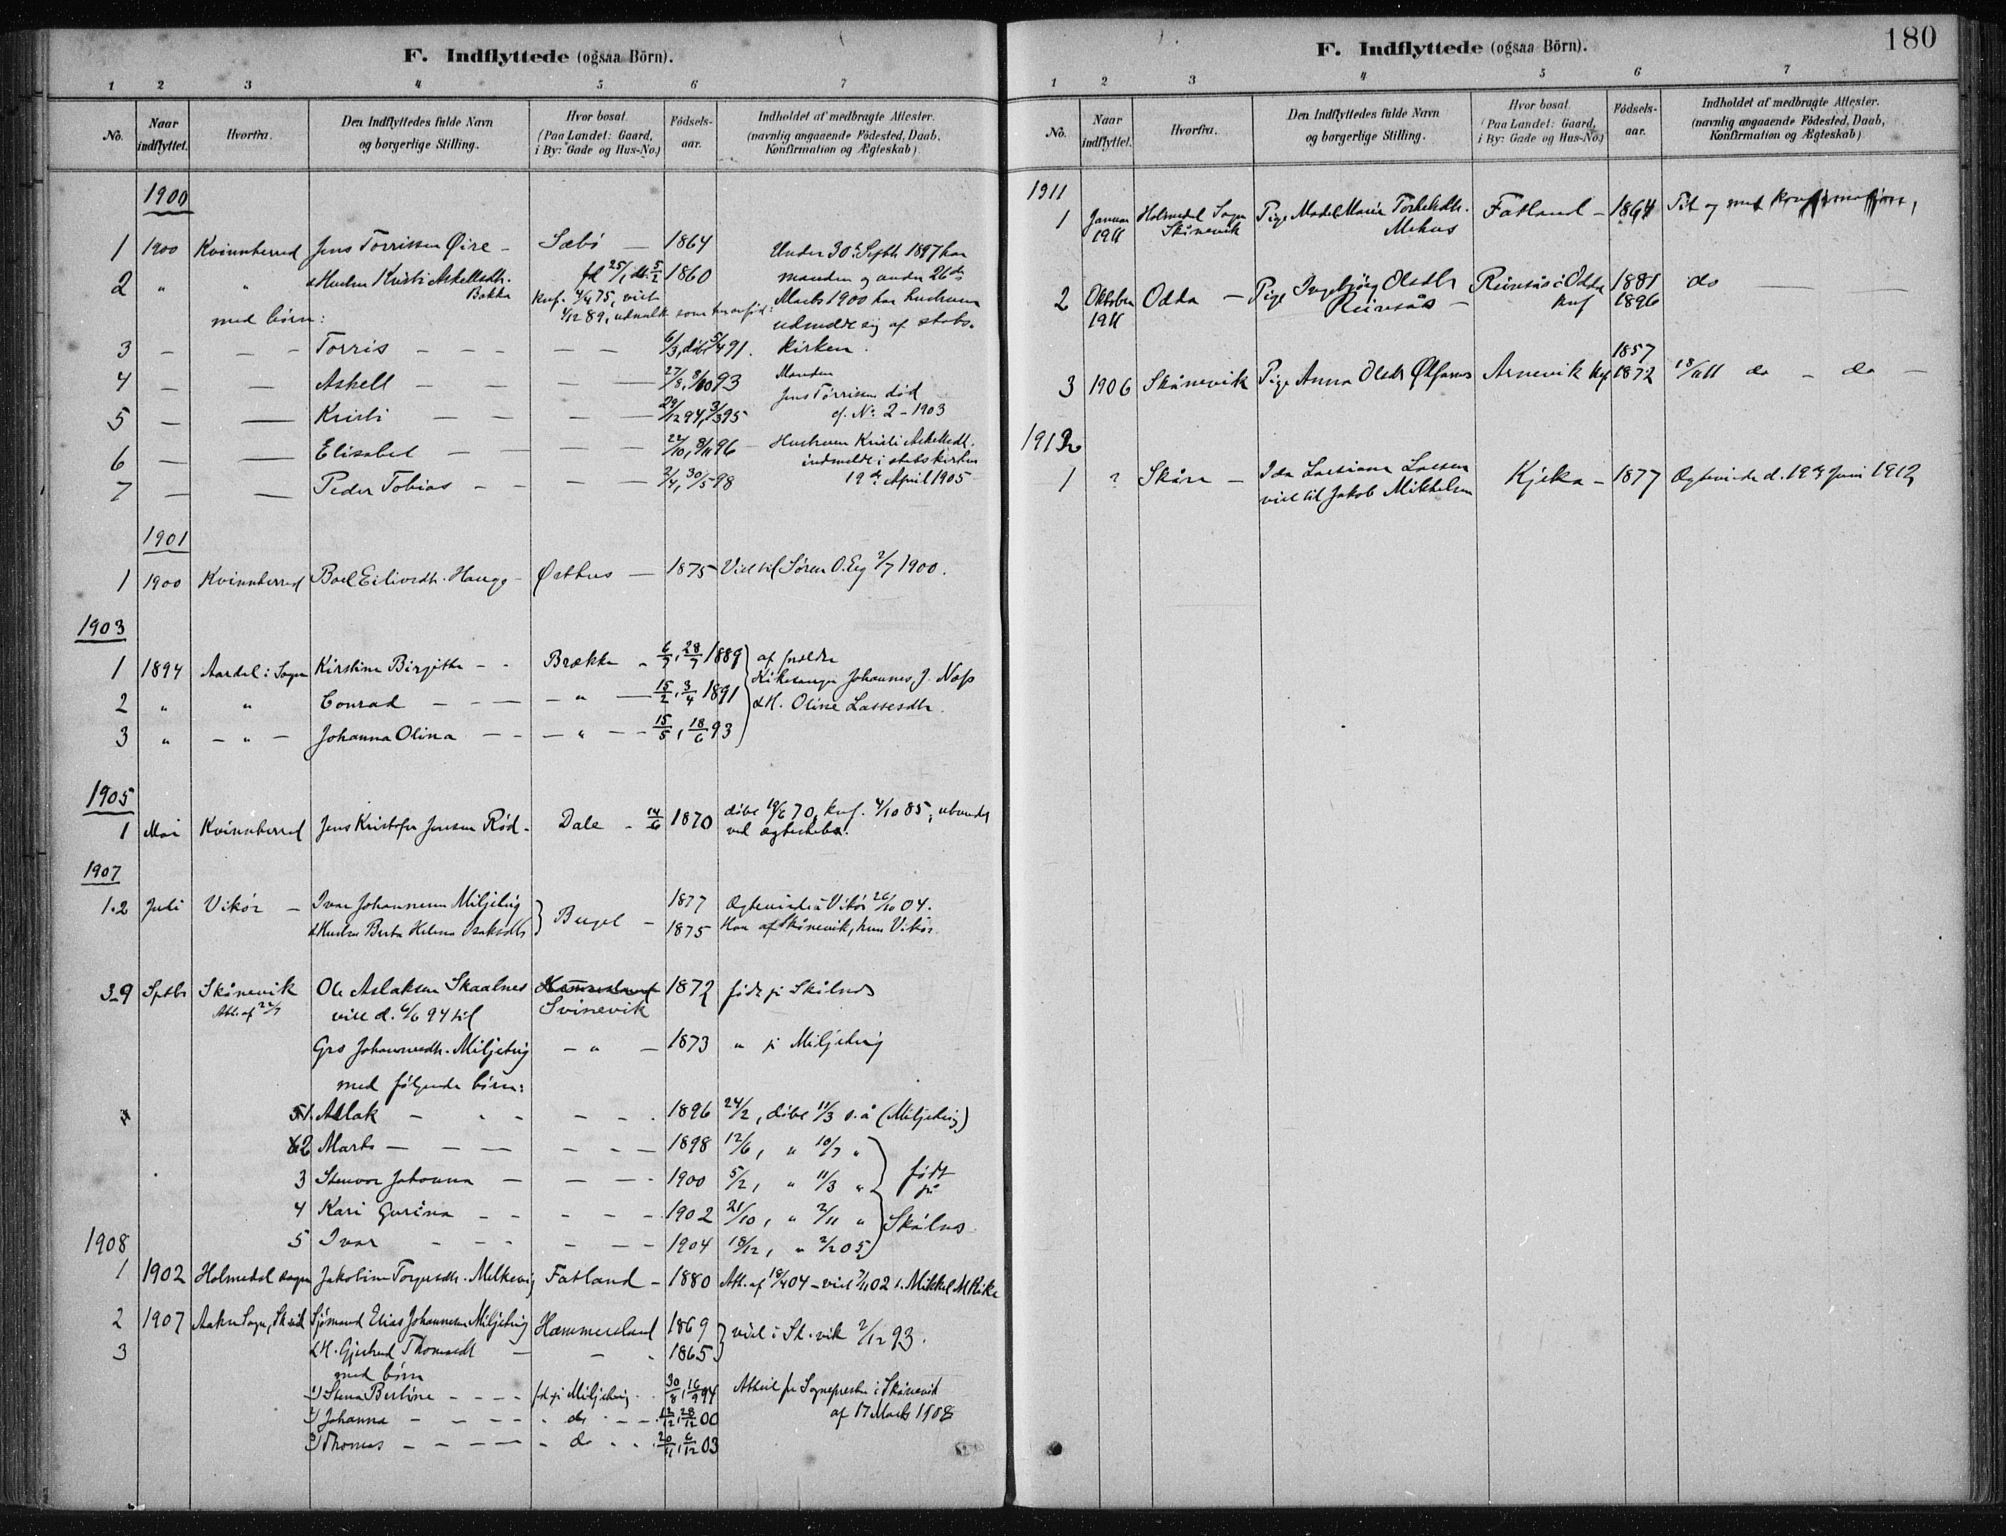 F. Indflyttede (ogsaa Börn).
1 2 3 4 5 6 7
No. Naar indflyttet. Hvorfra. Den Indflyttedes fulde Navn og borgerlige Stilling. Hvor bosat. (Paa Landet: Gaard, i By: Gade og Hus-No.) Födsels-aar. Indholdet af medbragte Attester. (navnlig angaaende Födested, Daab, Konfirmation og Ægteskab)
1900
1 1900 Kvinnherred Jens Torrissen Øire - Sæbö — 1864 Under 30te Septb. 1897 har
2 " " & Hustru Kristi Askelsdtr. Bakka fd 25/1 db. 5/2 1860 manden og under 26de
konf. 4/4 75, viet Marts 1900 har hustruen
med börn: 4/12 89, udmeldt sig af stats-
3 — — Torris — — — 6/3, döbt 5/4 91. kirken.
4 — — Askell — — — 27/8, 8/10 93 Manden
5 — — Kristi — — — 29/12 94, 3/3 95 Jens Torrissen död cf. No. 2 - 1903
6 — — Elisabet — — — 22/10, 8/11 96 — Hustruen Kristi Askelsdt. indmeldt i statskirken
7 — — Peder Tobias — — — 2/4, 30/5 98 19de April 1905
1901
1 1900 Kvinnherred Boel Eilivsdtr. Hauge - Østhus — 1875 - Viet til Sören O. Eeg 2/7 1900.
1903
1 1894 Aardal i Sogn Kirstine Birgithe - - Brække - 6/7, 28/7 1889 af forældre
2 " " Conrad — — — " — 15/2, 3/4 1891 Kirkesanger Johannes J. Næss
3 " — " — Johanna Olina — — — " — 15/5, 18/6 93 & H. Oline Lassesdtr.
1905
1 Mai Kvinnherred Jens Kristofer Jensen Röd - Dale - 14/6 1870 döbt 19/6 70, knf. 4/10 85, ubunden
ved ægteskab.
1907
1-2 Juli Vikör — Ivar Johannesen Miljeteig Bugel — 1877 Ægteviede i Vikör 26/10 04.
& Hustru Berta Helena Isaksdtr 1875 Han af Skånevik, hun Vikör.
3-9 Sptbr Skånevik Ole Aslaksen Skaalnes Hammersland 1872 födt på Skålnes
Att. af 24/9 viet d. 6/6 94 til Svinevik
Gro Johannesdtr. Miljeteig — " — 1873 " på Miljeteig
med fölgende börn:
1. Aslak — - - - - 1896 24/2, döbt 11/3 s. å (Miljeteig)
2 Marta — — — - - - 1898 12/6, " 10/7 "
3 Stenvor Johanna — — — - 1900 5/2, " 11/3 " födt på
4 Kari Gurina - - - - - 1902 21/10, " 2/11 " Skålnes
1908
5 Ivar - - - - — 1904 18/12, " 2/2 05
1 1902 Holmedal sogn Jakobine Torgersdtr. Melkevig Fatland - 1880 Att. af 18/4 04 - viet 7/11 02 t. Mikkel M Rike
2 1907 Aakre Sogn, Sk.vik Sjömand Elias Johannesen Miljeteig Hammersland 1869 viet i Sk.vik 2/12 93.
3 & H. Gjertrud Thomasdt — - - 1865
med börn
1) Stena Bertine - - - - fd. på Miljeteig - - 30/8, 16/9 94 Attest fr Sognepresten i Skånevik
2) Johanna - - - - - - do - - 12/12, 28/12 00 af 17 Marts 1908
3) Thomas - - - - - do - - 20/11, 6/12 03
F. Indflyttede (ogsaa Börn).
180
1 2 3 4 5 6 7
No. Naar indflyttet. Hvorfra. Den Indflyttedes fulde Navn og borgerlige Stilling. Hvor bosat. (Paa Landet: Gaard, i By: Gade og Hus-No.) Födsels-aar. Indholdet af medbragte Attester. (navnlig angaaende Födested, Daab, Konfirmation og Ægteskab)
1911
1 Januar 1911 Holmedal Sogn Skånevik Pige Madel Maria Torkelsdtr. Mehus Fatland - 1864 Til og med konfirmation,
2 Oktober 1911 Odda — Pige Ingebjörg Olsdtr Reinsås — Reinsås i Odda knf 1881 1896 do — — —
3 1906 Skånevik Pige Anna Olsdtr Ølfarnes Arnevik knf 1857 1872 18/11 11 do - do -
1912
1 ? Skåre — Ida Larsen viet til Jakob Mikkelsen Kjeka - 1877 Ægteviede d. 19de Juni 1912